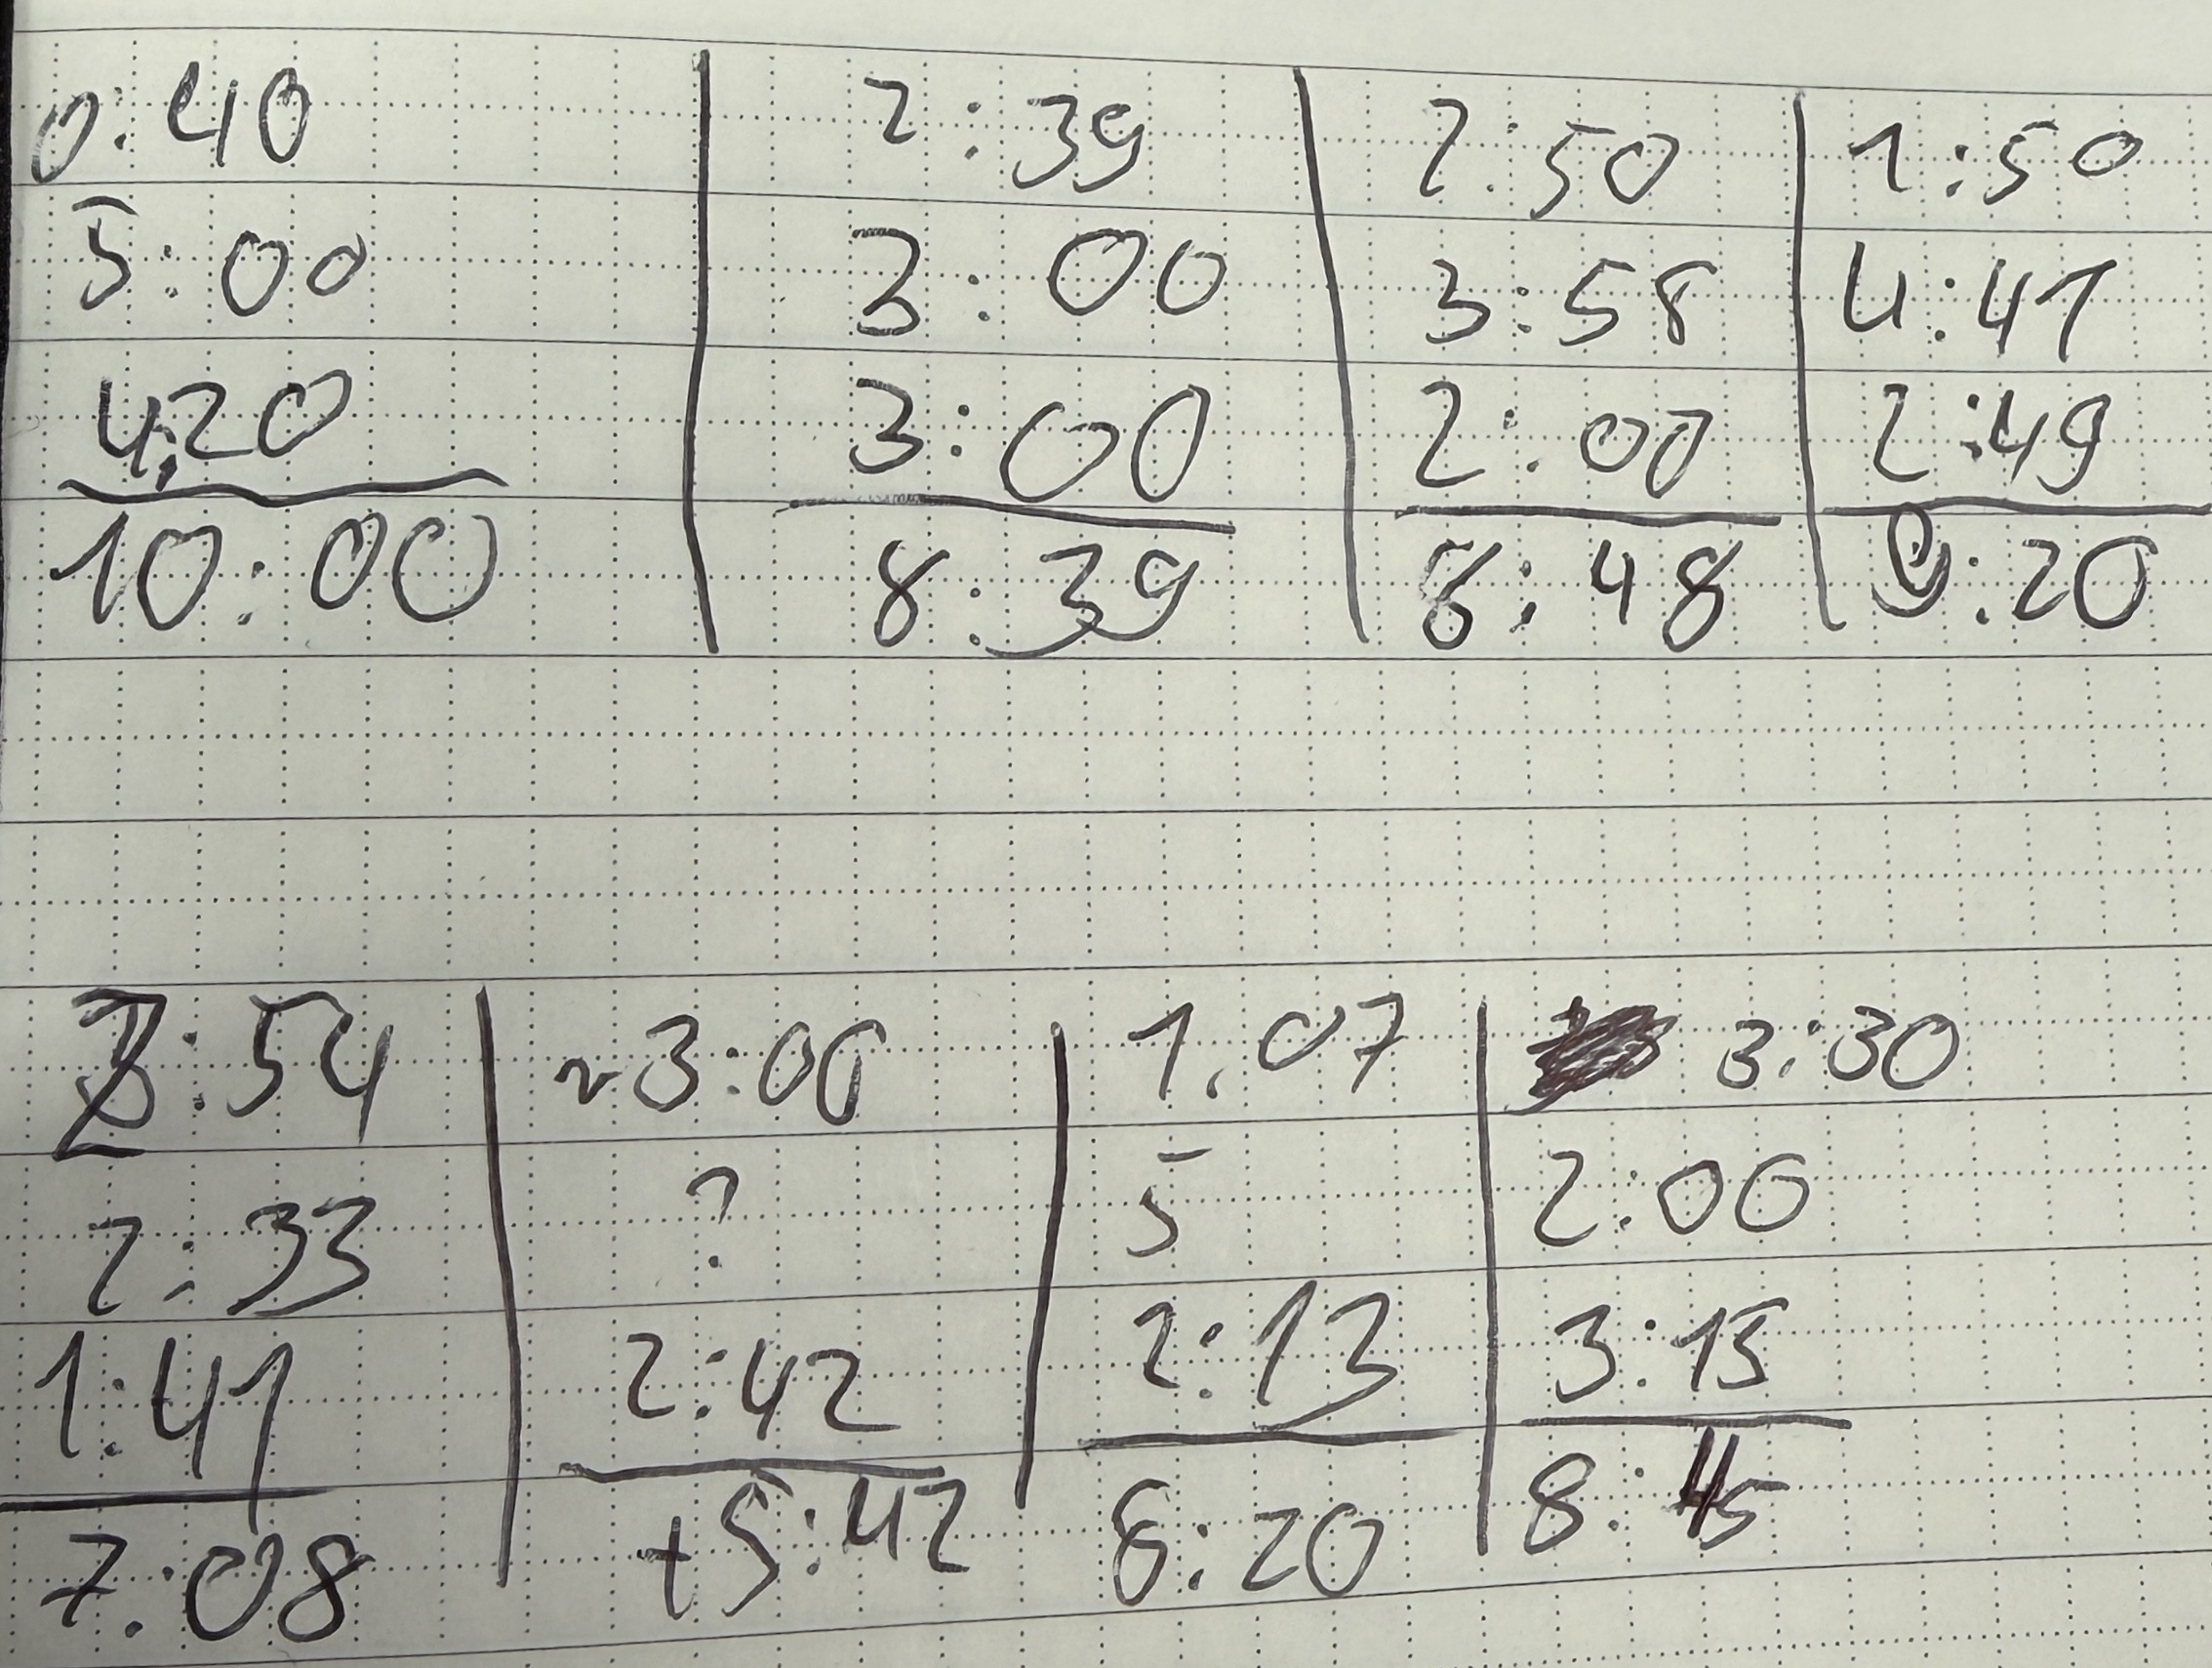 0:40
5:00
4:20
10:00
2:39
3:00
3:00
8:39
2:50
3:58
2:00
8:48
1:50
4:41
2:49
9:20
:54
2:33
1:41
7:08
~3:00
?
2:42
+5:42
1.07
5
2:13
8:20
3:30
2:00
3:15
8:45